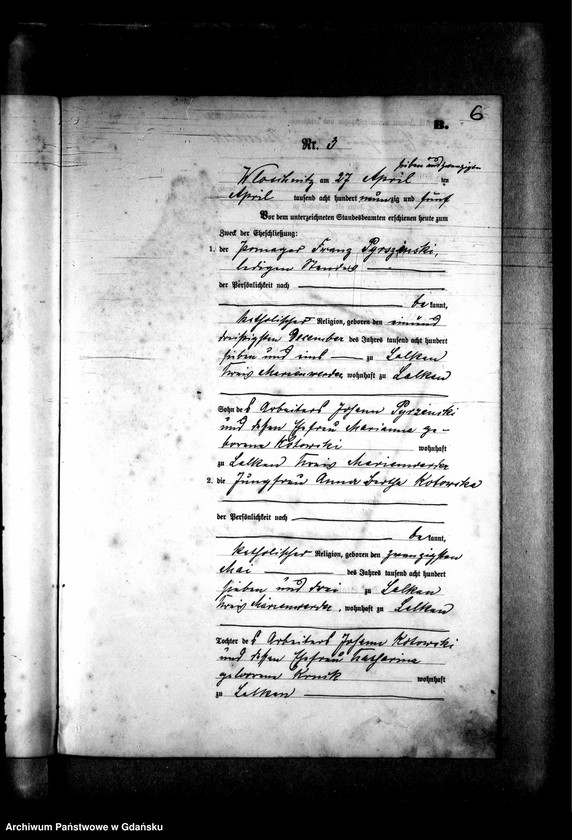 6
B.
Nr. 3
sieben und zwanzigsten
am 27 April ten
April tausend acht hundert neunzig und fünf
Vor dem unterzeichneten Standesbeamten erschienen heute zum
Zweck der Eheschließung:
1. der Franz
ledigen Standes
der Persönlichkeit nach
be kannt,
katholischer Religion, geboren den ein und
dreißigsten December des Jahres tausend acht hundert
sieben und eins zu Lalkau
Kreis Marienwerder, wohnhaft zu Lalkau
Sohn des Arbeiters Johann
und dessen Ehefrau Marianna ge-
borene Kotowski wohnhaft
zu Lalkau Kreis Marienwerder
2. die Jungfrau Anna Bertha Kotowska
der Persönlichkeit nach
be kannt,
katholischer Religion, geboren den zwanzigsten
Mai des Jahres tausend acht hundert
sieben und drei zu Lalkau
Kreis Marienwerder, wohnhaft zu Lalkau
Tochter des Arbeiters Johann Kotowski
und dessen Ehefrau Katharina
geborene wohnhaft
zu Lalkau
Archiwum Państwowe w Gdańsku